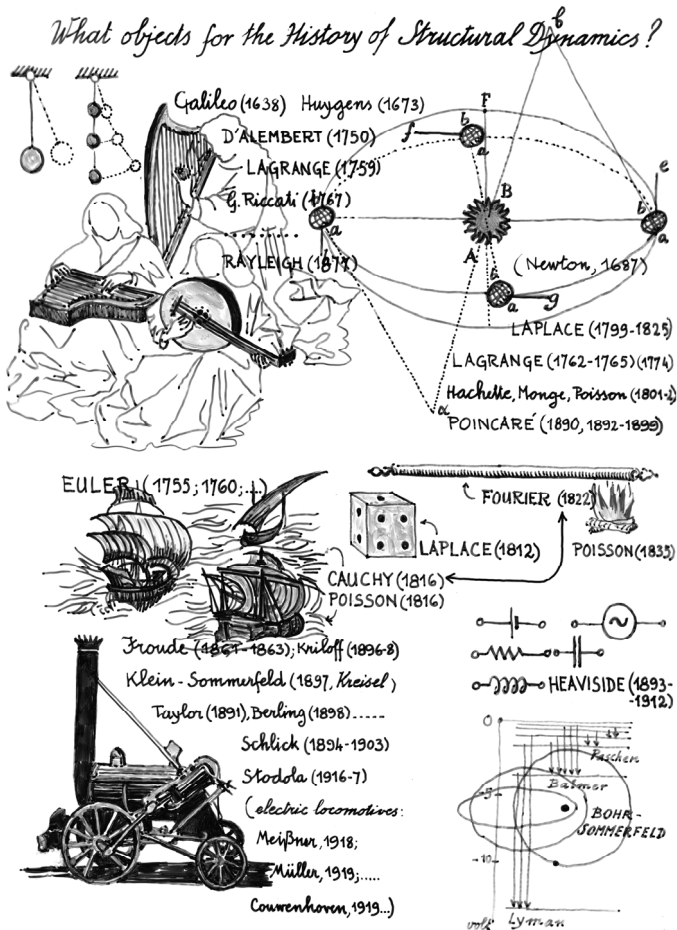 What objects for the History of Structural Dynamics?
Galileo (1638) Huygens (1673)
D'ALEMBERT (1750)
LAGRANGE (1759)
G. Riccati (1767)
RAYLEIGH (1877)
b
F
f b a
e
B
b a
b a
A
b a g
(Newton, 1687)
α
LAPLACE (1799-1825)
LAGRANGE (1762-1765) (1774)
Hachette, Monge, Poisson (1801-2)
POINCARÉ (1890, 1892-1899)
EULER (1755; 1760;...)
FOURIER (1822)
LAPLACE (1812)
POISSON (1835)
CAUCHY (1816)
POISSON (1816)
Froude (1861-1863); Kriloff (1896-8)
Klein-Sommerfeld (1897, Kreisel)
Taylor (1891), Berling (1898).....
Schlick (1894-1903)
Stodola (1916-7)
(electric locomotives:
Meißner, 1918;
Müller, 1919;.....
Couwenhoven, 1919...)
HEAVISIDE (1893-
-1912)
0
Paschen
Balmer
-5
BOHR-
SOMMERFELD
-10
volt Lyman